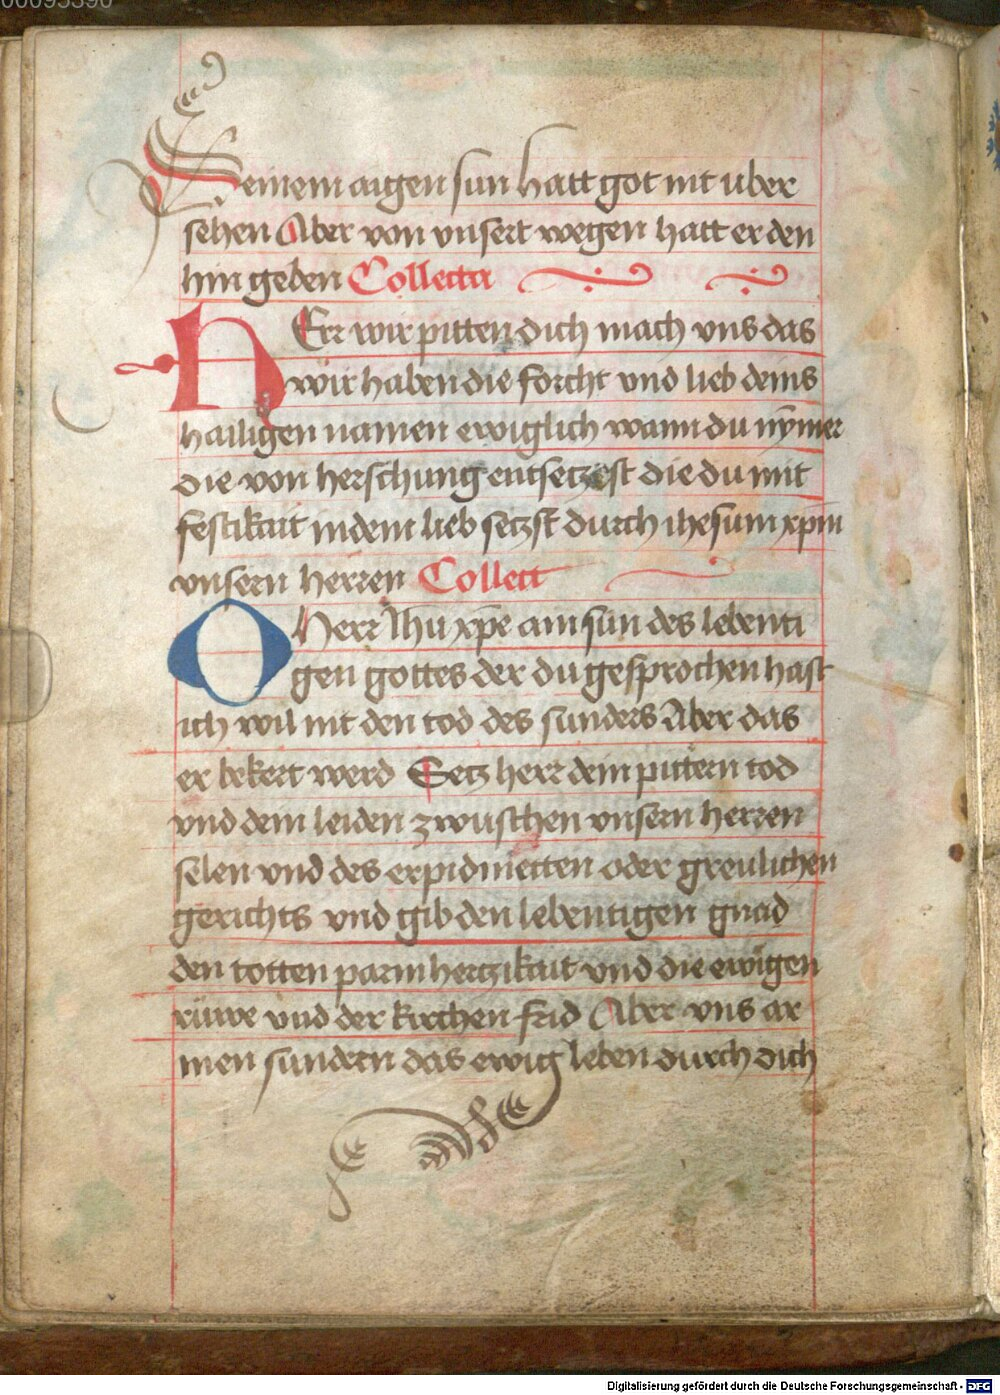 00095390
Seinem aigen sun hatt got nit uber
sehen Aber von unsert wegen hatt er den
hin geben Collecta
HErr wir pitten dich mach vns das
wir haben die forcht vnd lieb deins
hailigen namen ewiglich wann du nȳmer
die von herschung entsetzest die du mit
festikait in dem lieb setzst durch ihesum xpm̄
vnsern herren Collect
O Herr Ihu xp̄e ain sun des lebenti
gen gottes der du gesprochen hast
ich wil nit den tod des sunders Aber das
er bekert werd Setz herr dein pittern tod
vnd dein leiden zwuschen vnsern herren
selen vnd des erpidmetten oder greulichen
gerichts vnd gib den lebentigen gnad
den totten parmhertzikait vnd die ewigen
rüwe vnd der kirchen frid Aber vns ar
men sundern das ewig leben durch dich
Digitalisierung gefördert durch die Deutsche Forschungsgemeinschaft - DFG